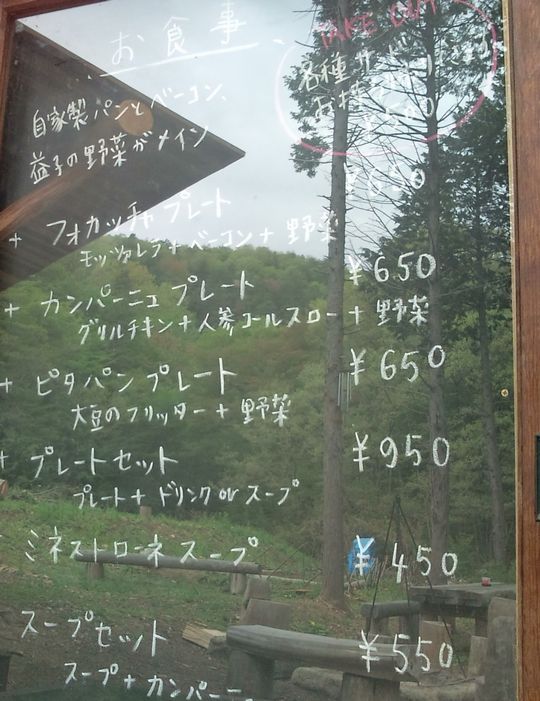 お食事
TAKE OUT
各種
自家製パンとベーコン、
益子の野菜がメイン
+ フォカッチャプレート ¥650
モッツァレラ+ベーコン+野菜
+ カンパーニュプレート ¥650
グリルチキン+人参コールスロー+野菜
+ ピタパンプレート ¥650
大豆のフリッター+野菜
+ プレートセット ¥950
プレート+ドリンク or スープ
ミネストローネスープ ¥450
スープセット ¥550
スープ+カンパーニュ